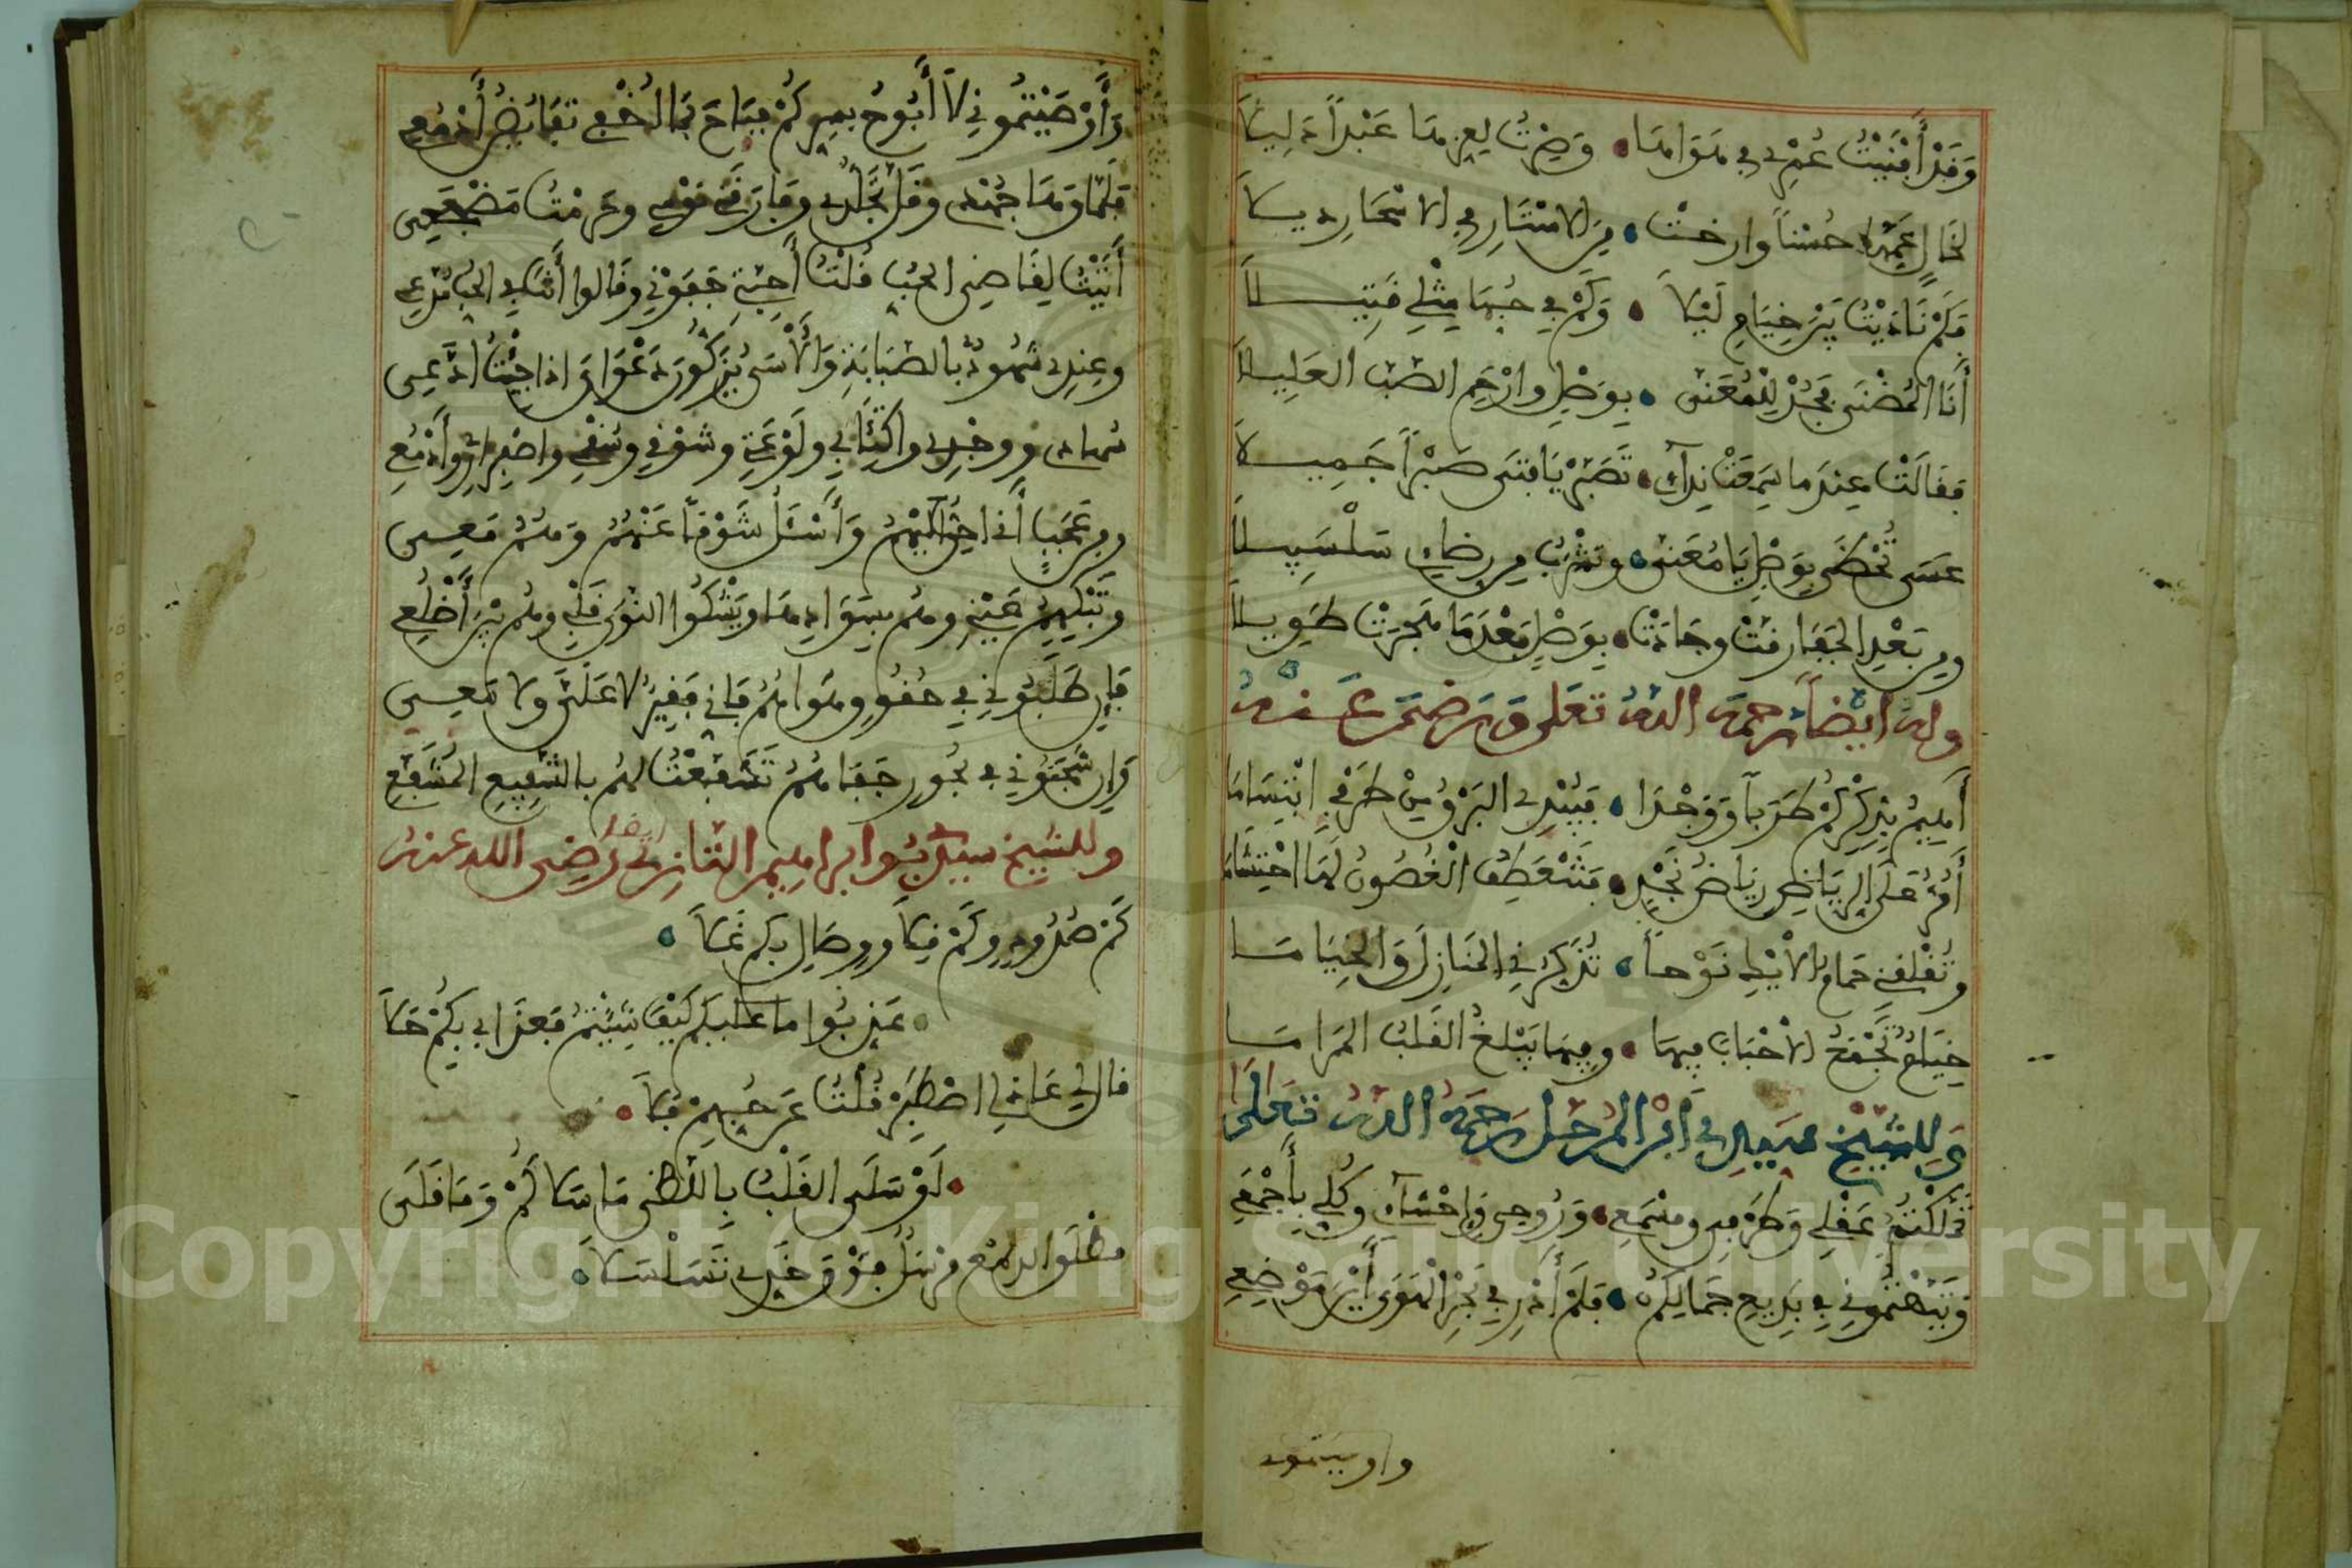 وَقَدْ أَفْنَيْتُ عُمْرِي فِي هَوَاهَا • وَصِرْتُ لِعِزِّهَا عَبْداً ذَلِيلاَ
لَخَالٍ عَمَّهَا حُسْناً وارخت • مِنَ الاسْتَارِ فِي الاسْحَارِ ديلاَ
فَكَمْ نَادَيْتُ بَيْنَ خِيَامِ لَيْلاَ • وَكَمْ فِي حُبِّهَا مِثْلِي قَتِيلاَ
أَنَا الْمُضْنَى فَجُدْ لِلْمُعَنَّى • بِوَصْلٍ وارْحَمِ الصَّبَّ العَلِيلاَ
فَقَالَتْ عِنْدَما سَمِعَتْ نِدَآئِي • تَصَبَّرْ يَا فَتَى صَبْراً جَمِيلاَ
عَسَى تُحْظَى بِوَصْلٍ يَا مُعَنَّى • وتَشْرَبُ مِن رضابي سَلْسَبِيلاَ
ومِن بَعْدِ الجَفَا رقَّتْ وجَادَتْ • بِوَصْلٍ بَعْدَمَا هَجَرَتْ طَوِيلاَ
وله ايضاً رحمه الله تعلى ورضى عنه
أَهِيمُ بِذِكْرِكُمْ طَرَباً وَوَجْدَا • فَيُبْدِي البَرْقُ مِنْ طَرَفِي ابْتِسَامَا
أَمُرُّ عَلَى الرِّيَاضِ رِيَاضُ نَجْدٍ • فَتَنْعَطِفُ الْغُصُونُ لَهَا احْتِشَامَا
وتُقْلِقُنِي حَمَامُ الاَيْكِ نَوْحاً • تُذَكِّرُنِي المَنَازِلَ وَالخِيَامَا
خِيَامٌ تَجْمَعُ الاَحْبَابَ فِيهَا • وفِيهَا يَبْلُغُ القَلْبُ المَرَامَا
وَلِلشَّيْخِ سَيِّدِي ابْن المُرَحَّل رَحِمَهُ اللهُ تَعَلَى
تَمَلَّكْتُمُ عَقْلِي وَطَرْفِي ومَسْمَعِي • وَرُوحِي وَإحْشَآئِي وكُلِّي بِأَجْمَعِي
وَتَيَّهْتُمُونِي فِي بَدِيعِ جَمَالِكُمْ • فَلَمْ أَدْرِ فِي بَحْرِ الْهَوَى أَيْنَ مَوْضِعِي
واوصيتموني
وَأَوْصَيْتُمُونِي لاَ أَبُوحُ بِسِرِّكُمْ فَبَاحَ بِمَا أُخْفِي تَفَايُضُ أَدْمُعِي
فَلَمَّا وَهَا جُهْدِي وقَلَّ تَجَلُّدِي وفَارَقَنِي نَوْمِي وحُرِّمْتُ مَضْجَعِي
أَتَيْتُ لِقَاضِي الحُبِّ قُلْتُ أَحِبَّتِي جَفَوْنِي وقَالوا أَنْتَ فِي الحُبِّ مُدَّعِي
وعِنْدِي شُهُودٌ بِالصَّبَابَةِ وَالأَسَى يُزَكُّونَ دَعْوَايَ اذا جِئْتُ ادَّعِي
سُهادِي ووجْدِي واكْتِئَابِي ولَوْعَتِي وشَوْقِي وسُقْمِي واصْفِرَارِي وأَدْمُعِي
ومِن عَجَبٍ أَنِّي احِنُّ إِلَيْهِمُ وَأَسْئَلُ شَوْقاً عَنْهُمُ وَهُمُ مَعِي
وتَبْكِيهِمُ عَيْنِي وهُم بِسَوَادِهَا ويَشْكُوا النَّوَى قَلْبِي وهُم بَيْنَ أَضْلُعِي
فَإِن طَلَبُونِي فِي حُقُوقِ هَوَاهُمُ فَإِنِّي فَقِيرٌ لاَ عَلَيَّ ولا مَعِي
وَإِن سَجَنُونِي فِي سُجُونِ جَفَاهُمُ تَشَفَّعْتُ لَهُم بِالشَّفِيعِ المُشَفَّعِ
وللشيخ سيدي ابو ابراهيم التازي رضي الله عنه
كَمْ صُدُودٍ وكَمْ قِلاَ ووِصَالٍ بِكم غَلاَ •
• عَذِّبُوا مَا عَلَيْكُم كَيْفَ شِئْتُمُ فَعَذَابِي بِكُمْ حَلاَ
قال لي عَاذِلِي اصْطَبِرْ قُلْتُ عَن حُبِّهِمْ فَلاَ •
• لَوْ سَلَى القَلْبُ بِاللَّظَى مَا سَلاَكُمْ وَمَا قَلَى
هطَلَ الدمْع مرْسَلُ فَوْقَ خَدِّي تَسَلْسَلاَ •